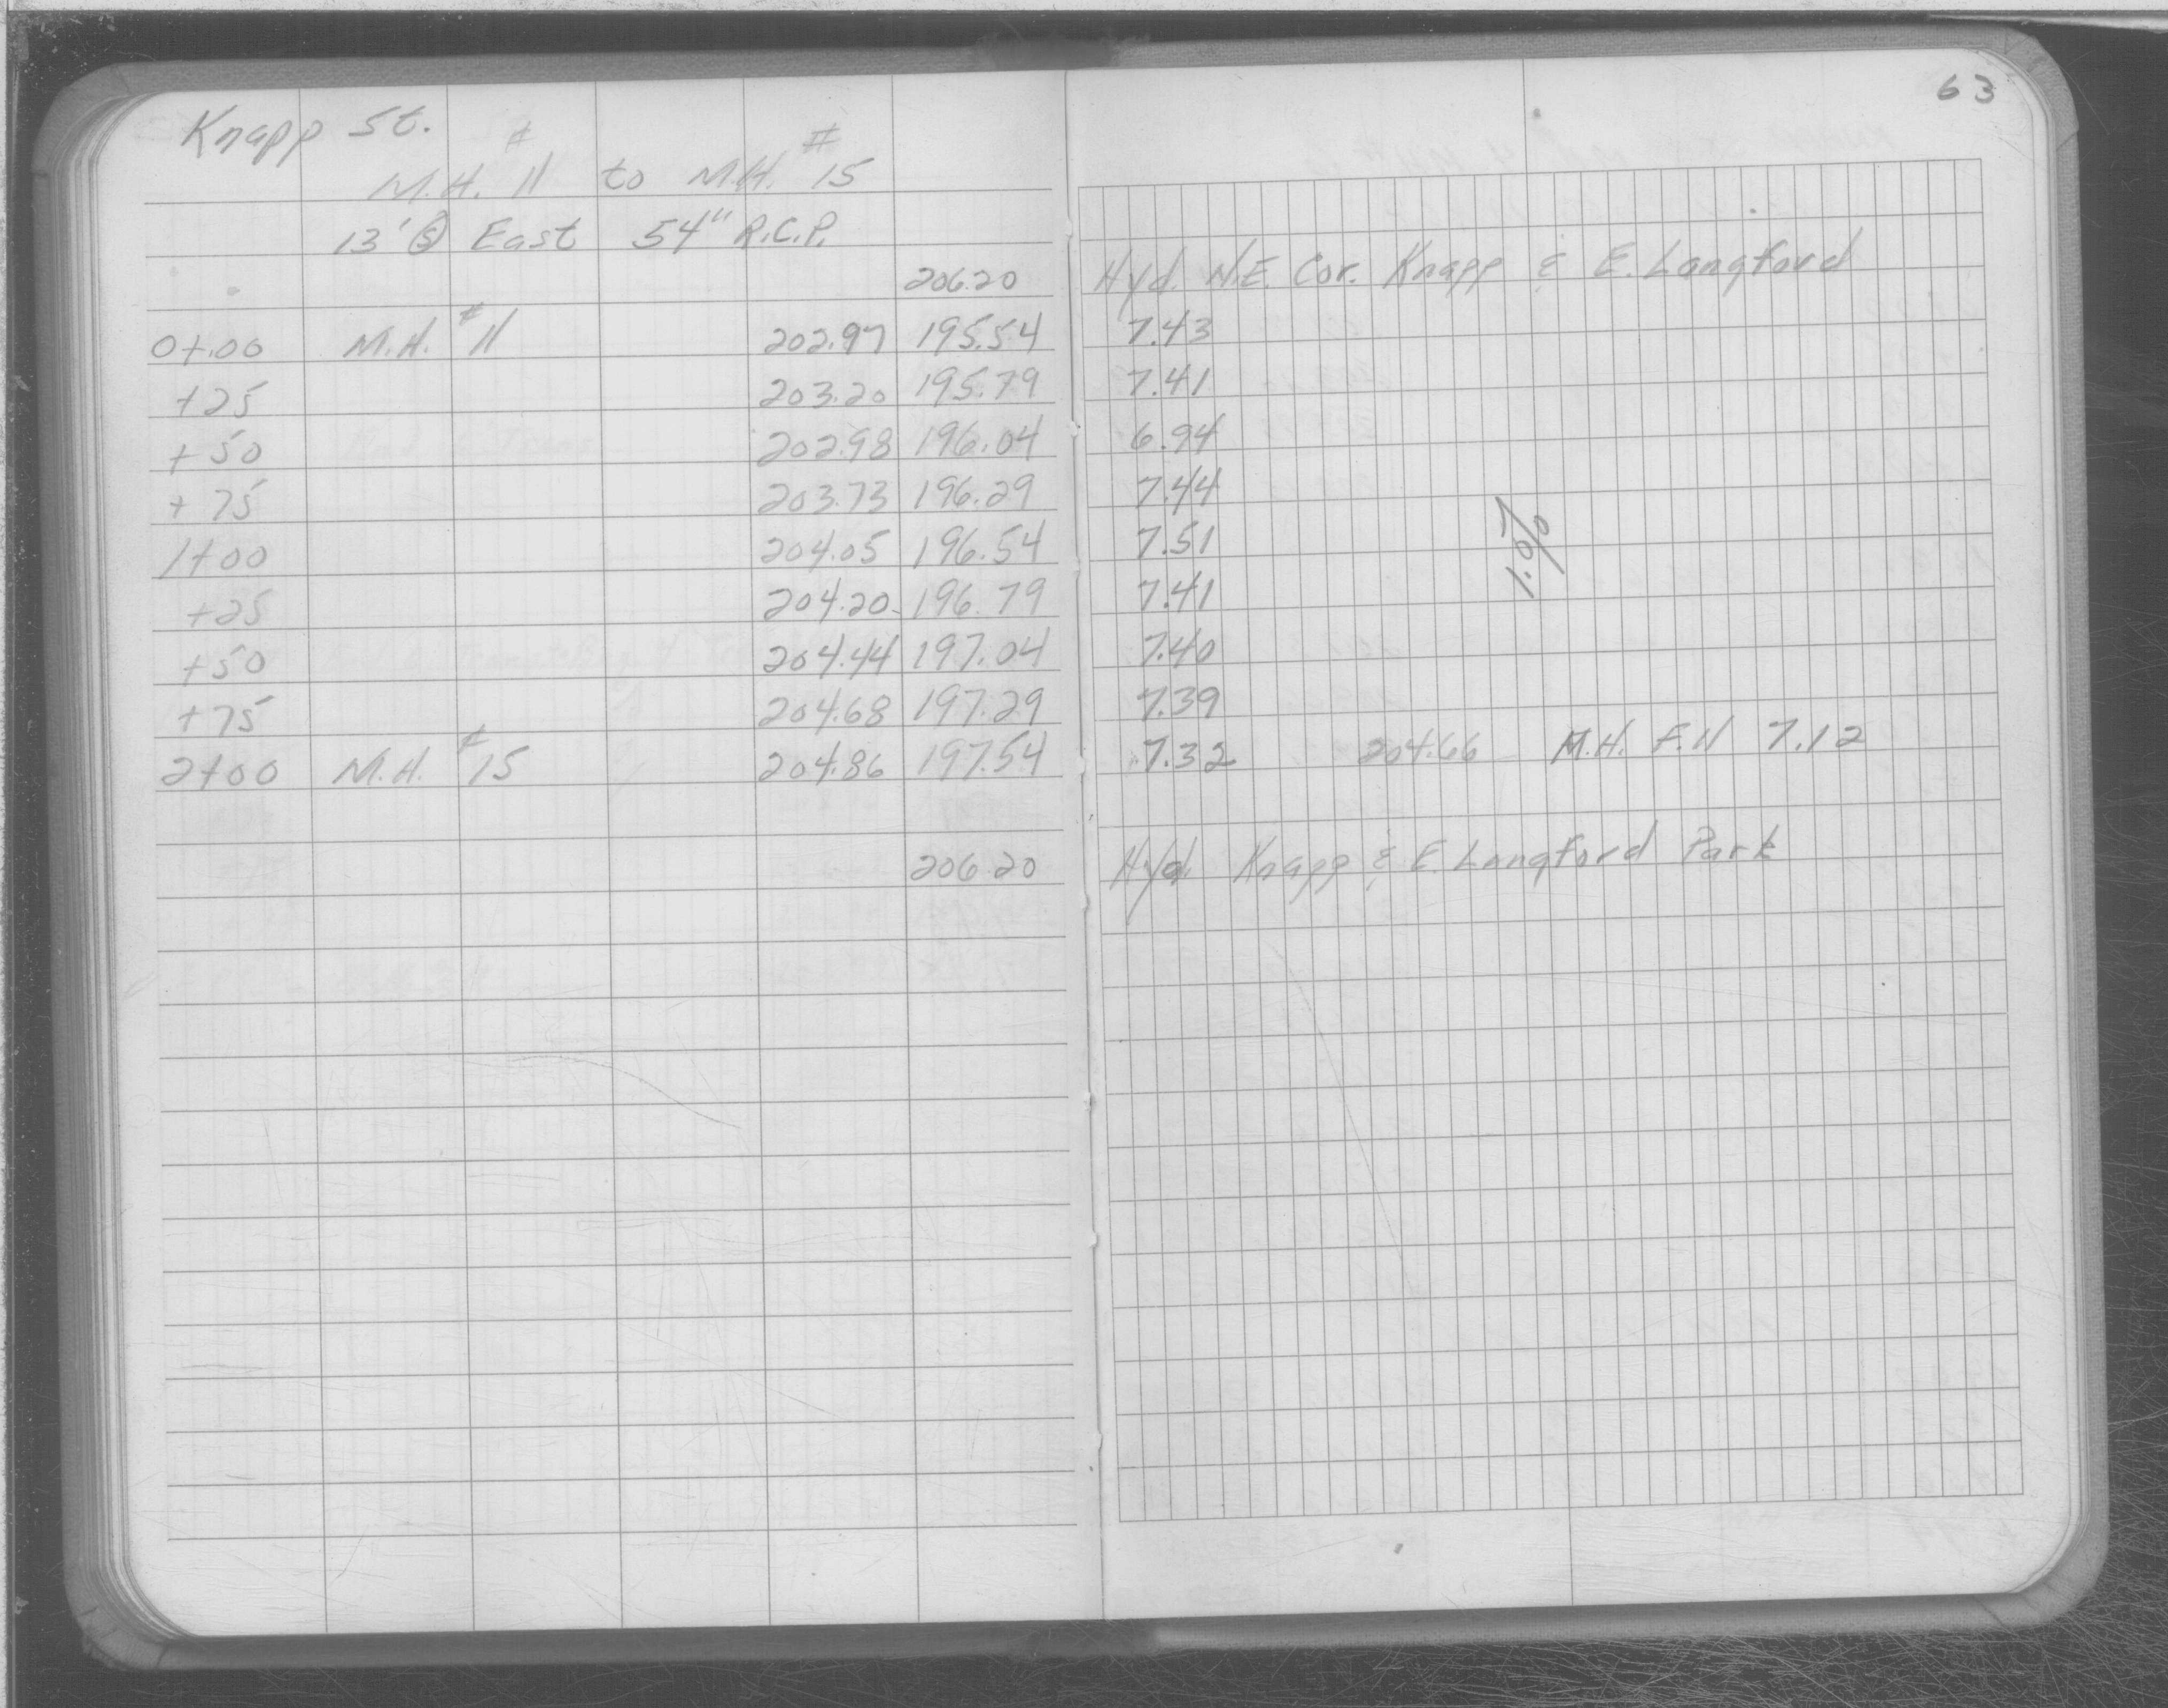 63
Knapp St.
M.H. #11 to M.H. #15
13' Ⓢ East 54" R.C.P.
206.20 Hyd. N.E. Cor. Knapp & E. Langford
0+00 M.H. #11 202.97 195.54 7.43
+25 203.20 195.79 7.41
+50 202.98 196.04 6.94
+75 203.73 196.29 7.44
1+00 204.05 196.54 7.51
1.0%
+25 204.20 196.79 7.41
+50 204.44 197.04 7.40
+75 204.68 197.29 7.39
2+00 M.H. #15 204.86 197.54 7.32 204.66 M.H. F.11 7.12
206.20 Hyd. Knapp & E. Langford Park